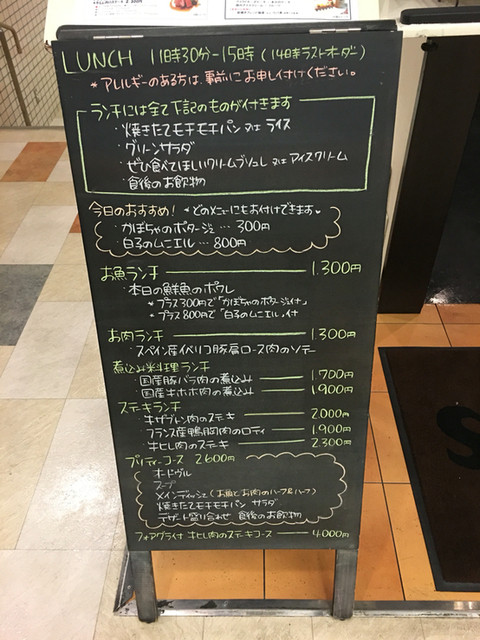 LUNCH 11時30分-15時(14時ラストオーダー)
*アレルギーのある方は、事前にお申し付けください。
ランチには全て下記のものが付きます
・焼きたてモチモチパン 又は ライス
・グリーンサラダ
・ぜひ食べてほしいクリームブリュレ 又は アイスクリーム
・食後のお飲物
今日のおすすめ! *どのメニューにもお付けできます
・かぼちゃのポタージュ … 300円
・白子のムニエル … 800円
お魚ランチ 1.300円
・本日の鮮魚のポワレ
*プラス300円で「かぼちゃのポタージュ付」
*プラス800円で「白子のムニエル」付
お肉ランチ 1.300円
・スペイン産イベリコ豚肩ロース肉のソテー
煮込み料理ランチ
・国産豚バラ肉の煮込み 1.700円
・国産牛ホホ肉の煮込み 1.900円
ステーキランチ
・牛ザブトン肉のステーキ 2.000円
・フランス産鴨胸肉のロティ 1.900円
・牛ヒレ肉のステーキ 2.300円
プリティーコース 2.600円
オードヴル
スープ
メインディッシュ(お魚とお肉のハーフ&ハーフ)
焼きたてモチモチパン サラダ
デザート盛り合わせ 食後のお飲物
フォアグラ付 牛ヒレ肉のステーキコース 4.000円